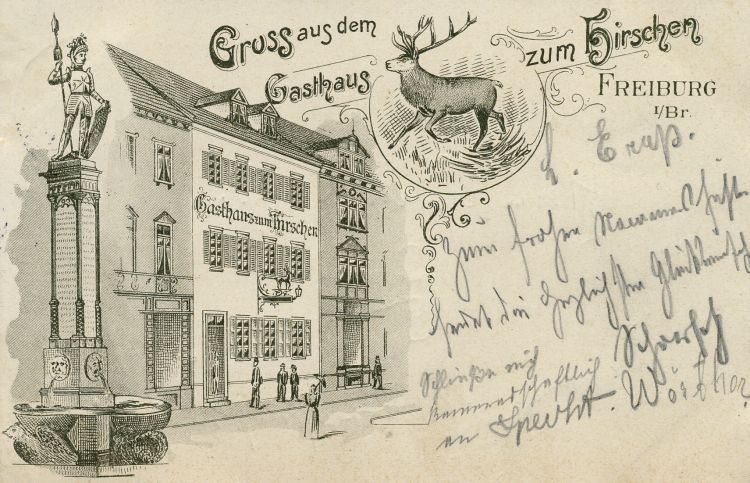 Gruss aus dem
Gasthaus
zum Hirschen
FREIBURG
I/Br.
Gasthaus zum Hirschen
L. Ernst.
Zum frohen Namensfeste
sendet die herzlichsten Glückwünsche
Schließe mich
kameradschaftlich
an Specht.